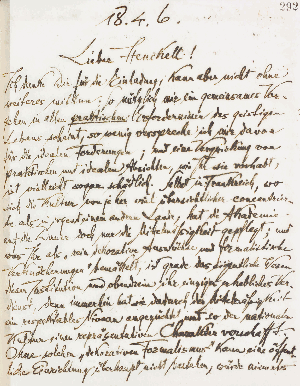 292
18.4.6.
Lieber Henckell!
Ich danke Dir für die Einladung, kann aber nicht ohne
weiteres mitthun; so nützlich mir ein gemeinsames Vor-
gehen in allen praktischen Erfordernissen des geistigen
Lebens scheint, so wenig verspreche ich mir davon
für die idealen Forderungen; und eine Verquickung von
praktischen und idealen Absichten, wie Ihr sie vorhabt,
ist vielleicht sogar schädlich. Selbst in Frankreich, wo
sich die Kultur von jeher viel übersichtlicher concentrir-
te als in irgend einem andern Lande, hat die Akademie
auf die Dauer doch nur die Mittelmäßigkeit gepflegt; und
was Ihr als rein dekorative Ausdrücke und formalistische
bemäkelt, ist grade das eigentliche Wesen
Institution und obendrein ihr einziger erheblicher Ver-
dienst, denn immerhin hat sie dadurch der Mittelmäßigkeit
ein respektables Niveau angezüchtet und so der nationalen
Kultur einen repräsentativen Charakter verschafft.
Ohne solchen „dekorativen Formalismus" kann eine öffent-
liche Einrichtung überhaupt nicht bestehen, würde niemals